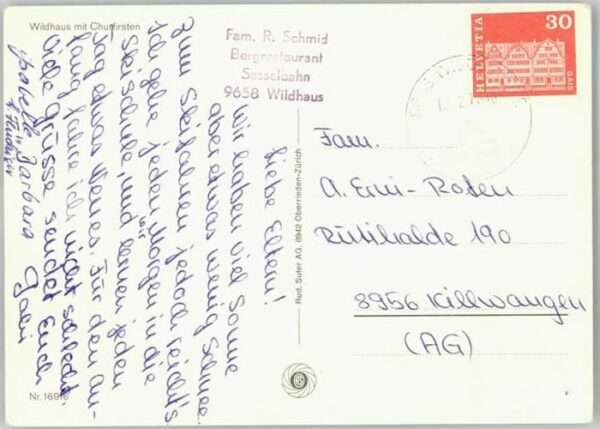 Wildhaus mit Churfirsten
Fam. R. Schmid
Bergrestaurant
Sesselbahn
9658 Wildhaus
HELVETIA
30
GAIS
Liebe Eltern!
Wir haben viel Sonne
aber etwas wenig Schnee
zum Skifahren jedoch reicht's
Ich gehe jeden Morgen in die
Skischule, und wir lernen jeden
Tag etwas Neues. Für den An-
fang fahre ich nicht schlecht.
Viele Grüsse sendet Euch
Gabi
Isabella Barbara
Fam.
A. Erni-Roten
Rütihalde 190
8956 Killwangen
(AG)
Rud. Suter AG, 8942 Oberrieden-Zürich
Nr. 16916